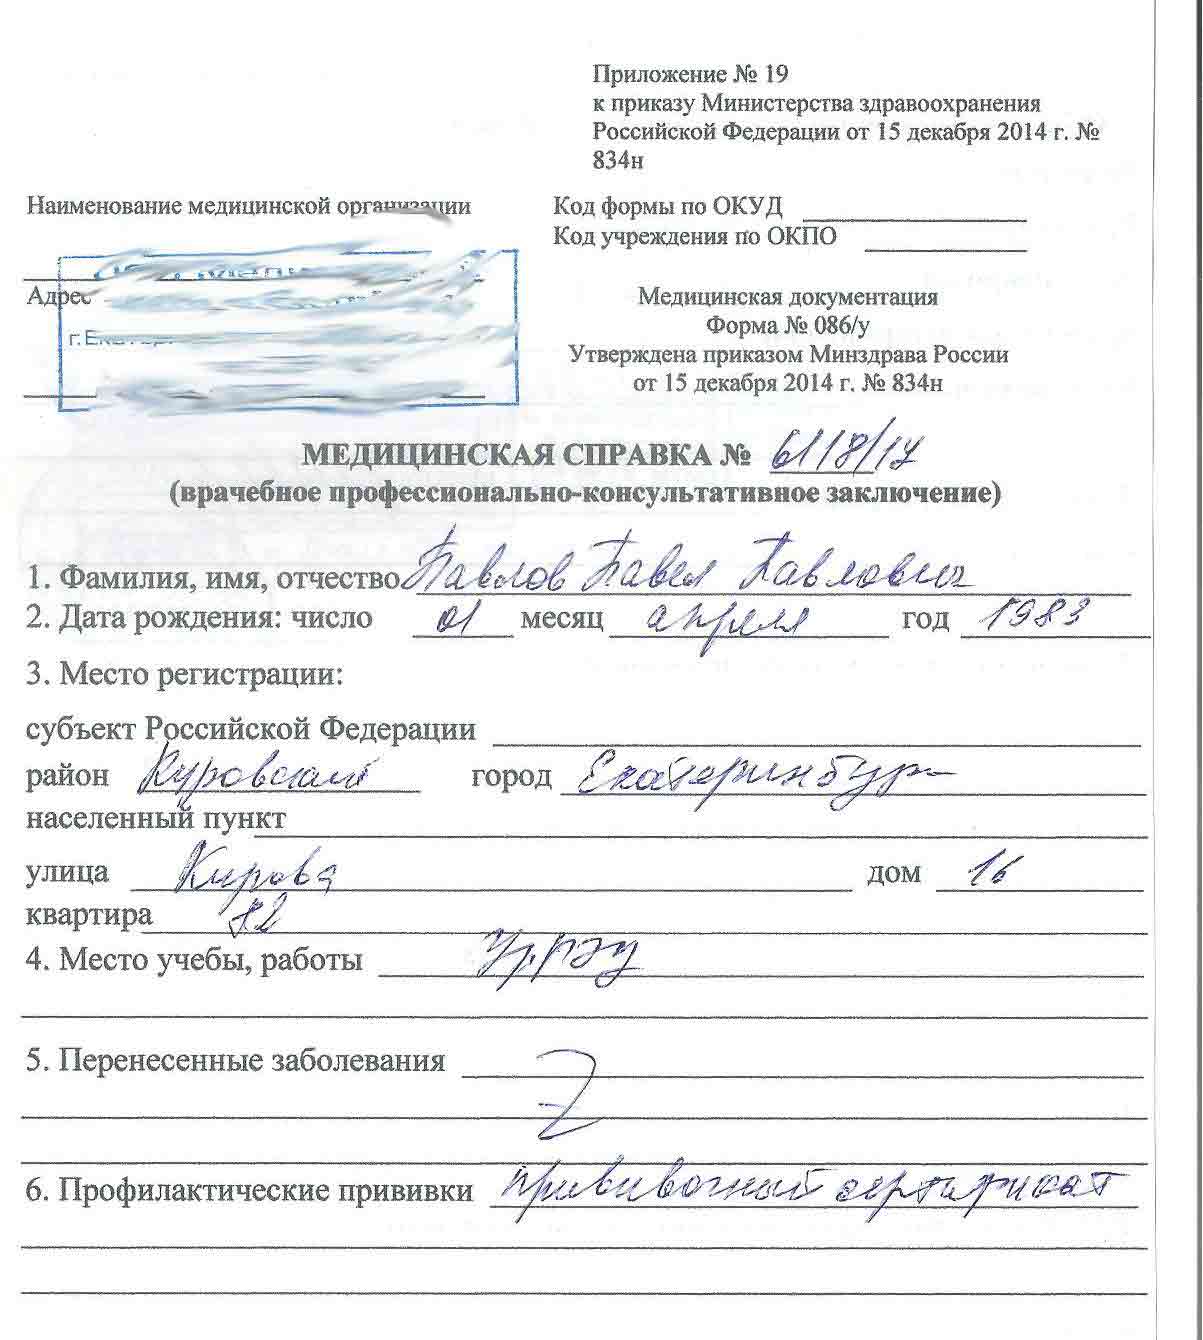 Приложение № 19
к приказу Министерства здравоохранения
Российской Федерации от 15 декабря 2014 г. №
834н
Наименование медицинской организации
Код формы по ОКУД
Код учреждения по ОКПО
Адрес
Медицинская документация
Форма № 086/у
Утверждена приказом Минздрава России
от 15 декабря 2014 г. № 834н
МЕДИЦИНСКАЯ СПРАВКА № 6118/17
(врачебное профессионально-консультативное заключение)
1. Фамилия, имя, отчество Павлов Павел Павлович
2. Дата рождения: число 01 месяц апреля год 1983
3. Место регистрации:
субъект Российской Федерации
район Кировский город Екатеринбург
населенный пункт
улица Кирова дом 16
квартира
4. Место учебы, работы УрГЭУ
5. Перенесенные заболевания
6. Профилактические прививки прививочный сертификат